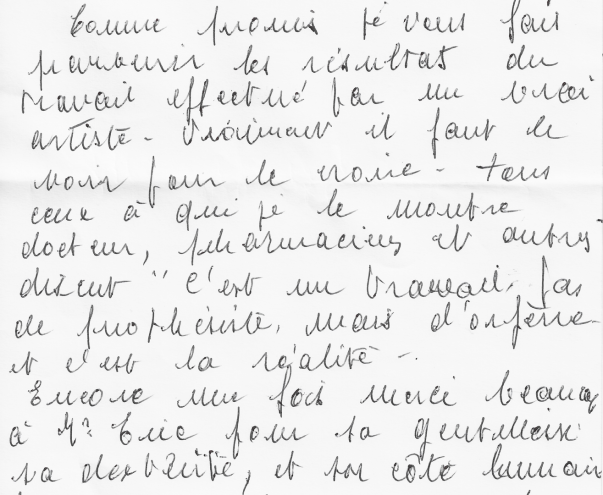 Comme promis je vous fais
parvenir les résultat du
travail effectué par un vrai
artiste - Vraiment il faut le
voir pour le croire - tous
ceux à qui je le montre
docteur, pharmaciens et autres
disent " C'est un travail, pas
de prothésiste, mais d'orfèvre
et c'est la réalité -.
Encore une fois merci beaucoup
à Mr Eric pour sa gentillesse
sa dextérité, et son côté humain